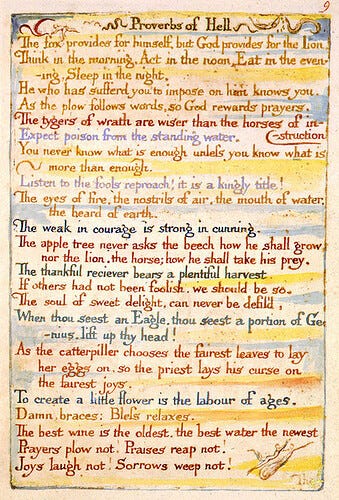 9
Proverbs of Hell
The fox provides for himself, but God provides for the lion
Think in the morning, Act in the noon, Eat in the even-
-ing, Sleep in the night,
He who has sufferd you to impose on him knows you.
As the plow follows words, so God rewards prayers.
The tygers of wrath are wiser than the horses of in-
-struction
Expect poison from the standing water.
You never know what is enough unless you know what is
more than enough.
Listen to the fools reproach! it is a kingly title!
The eyes of fire, the nostrils of air, the mouth of water,
the beard of earth.
The weak in courage is strong in cunning.
The apple tree never asks the beech how he shall grow,
nor the lion, the horse; how he shall take his prey.
The thankful reciever bears a plentiful harvest
If others had not been foolish, we should be so.
The soul of sweet delight, can never be defil'd,
When thou seest an Eagle, thou seest a portion of Ge-
-nius, lift up thy head!
As the catterpiller chooses the fairest leaves to lay
her eggs on, so the priest lays his curse on
the fairest joys.
To create a little flower is the labour of ages.
Damn, braces: Bless relaxes.
The best wine is the oldest, the best water the newest
Prayers plow not! Praises reap not!
Joys laugh not! Sorrows weep not!
The